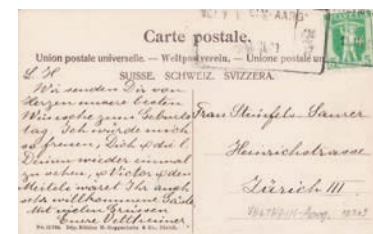 Carte postale.
Union postale universelle. — Weltpostverein. — Unione postale un
SUISSE. SCHWEIZ. SVIZZERA.
L. H.
Wir senden Dir von
Herzen unsere besten
Wünsche zum Geburts
tag. Ich würde mich
so freuen, Dich & die l.
Deinen wieder einmal
zu sehen, & Victor & den
Meitels wäret Ihr auch
stets willkommene Gäste
Mit vielen Grüssen
Eure Veltheimer
Frau Steinfels-Saurer
Heinrichstrasse
Zürich III.
VELTHEIM-Aarg.
HELVETIA